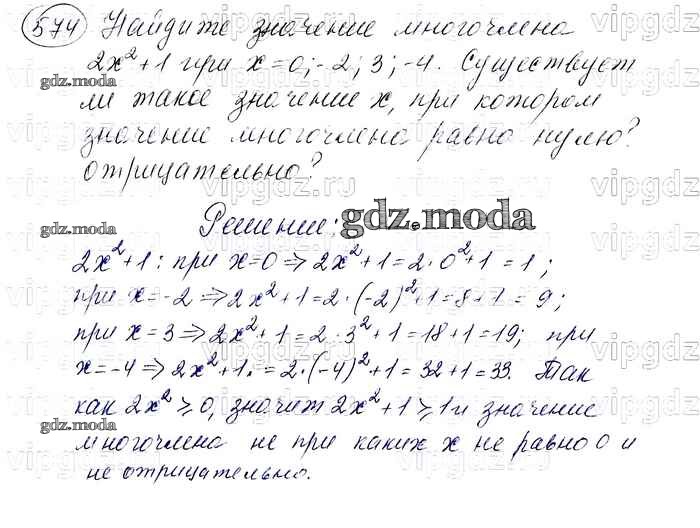 574 Найдите значение многочлена
2x²+1 при x=0; -2; 3; -4. Существует
ли такое значение x, при котором
значение многочлена равно нулю?
отрицательно?
Решение:
2x²+1: при x=0 ⇒ 2x²+1=2·0²+1=1;
при x=-2 ⇒ 2x²+1=2·(-2)²+1=8+1=9;
при x=3 ⇒ 2x²+1=2·3²+1=18+1=19; при
x=-4 ⇒ 2x²+1.=2·(-4)²+1=32+1=33. Так
как 2x²≥0, значит 2x²+1≥1 и значение
многочлена не при каких x не равно 0 и
не отрицательно.
gdz.moda
gdz.moda
gdz.moda
gdz.moda
gdz.moda
vipgdz.ru
vipgdz.ru
vipgdz.ru
vipgdz